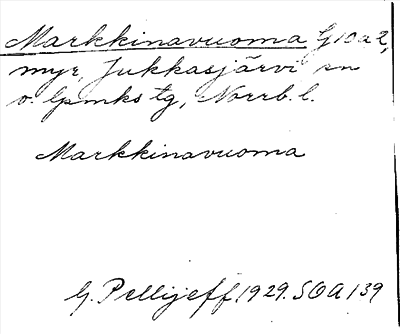 Markkinavuoma G10a2,
myr, Jukkasjärvi sn
o. lpmks tg, Norrb. l.
Markkinavuoma
G. Pellijeff 1929. SOA 139